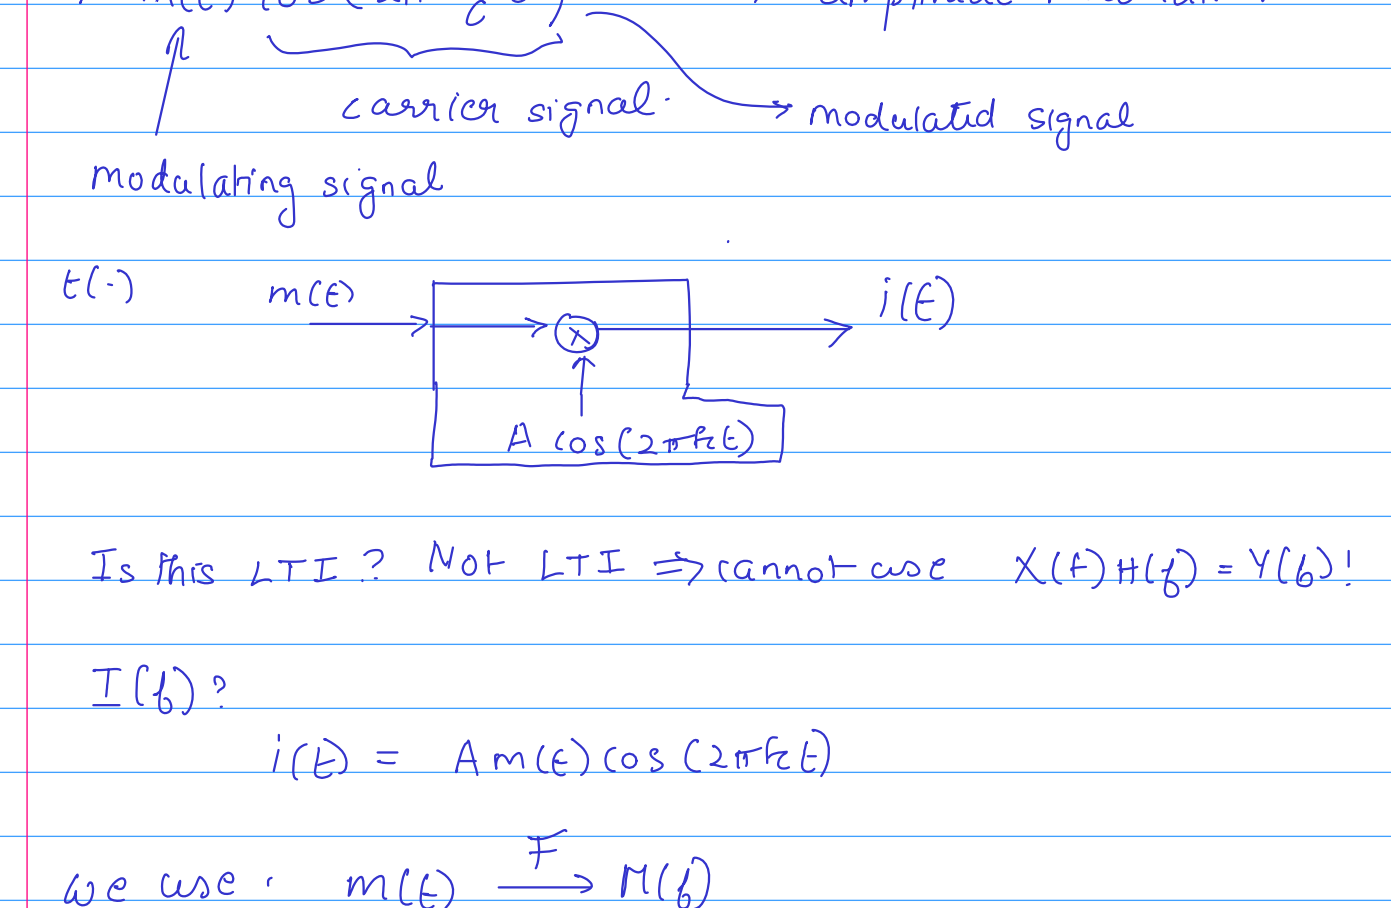 carrier signal.
modulated signal
modulating signal
t(·) m(t) i(t)
X
A cos(2πfct)
Is this LTI? Not LTI ⇒ cannot use X(f)H(f) = Y(f)!
I(f)?
i(t) = A m(t) cos(2πfct)
F
we use : m(t) → M(f)